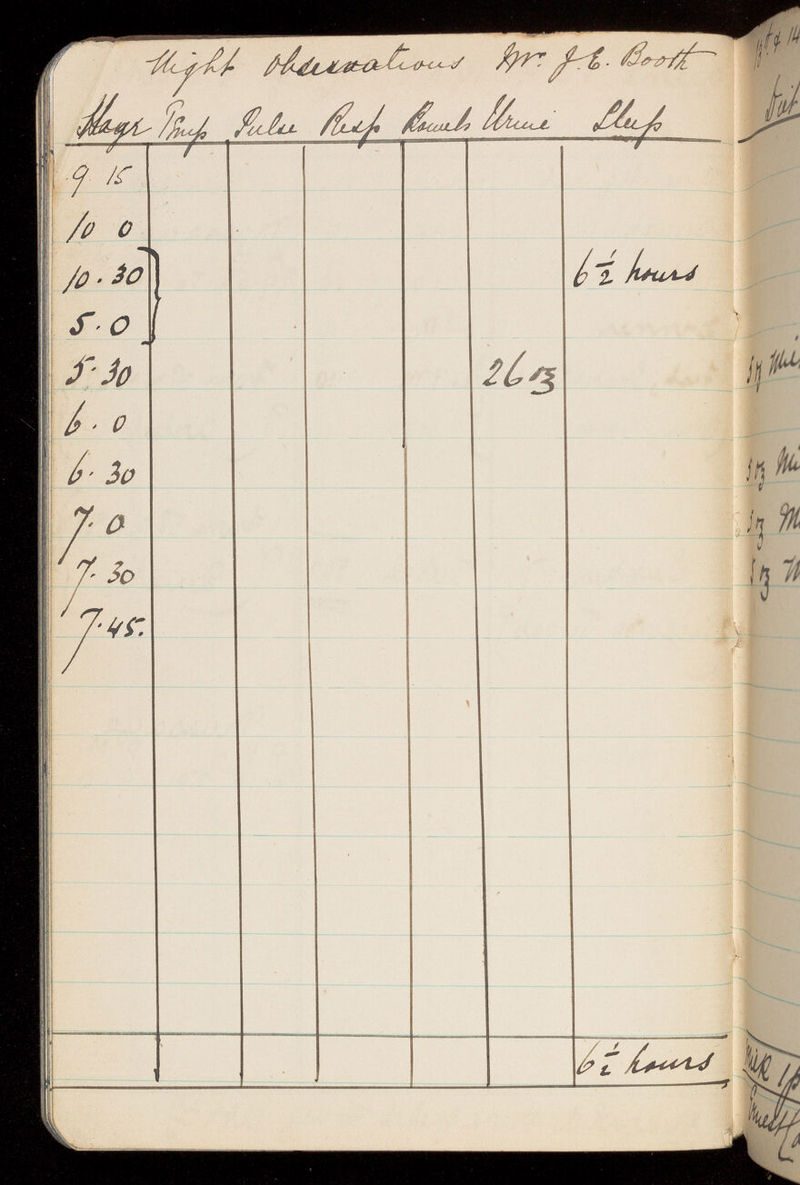 Night Observations Mr. J. E. Booth
Temp Pulse Resp Bowels Urine Sleep
9 15
10 0
10.30 6 1/2 hours
5.0
5.30 26 oz
6.0
6.30
7.0
7.30
7.45.
6 1/2 hours
13th & 14
Diet
5 oz
5 oz
5 oz
5 oz